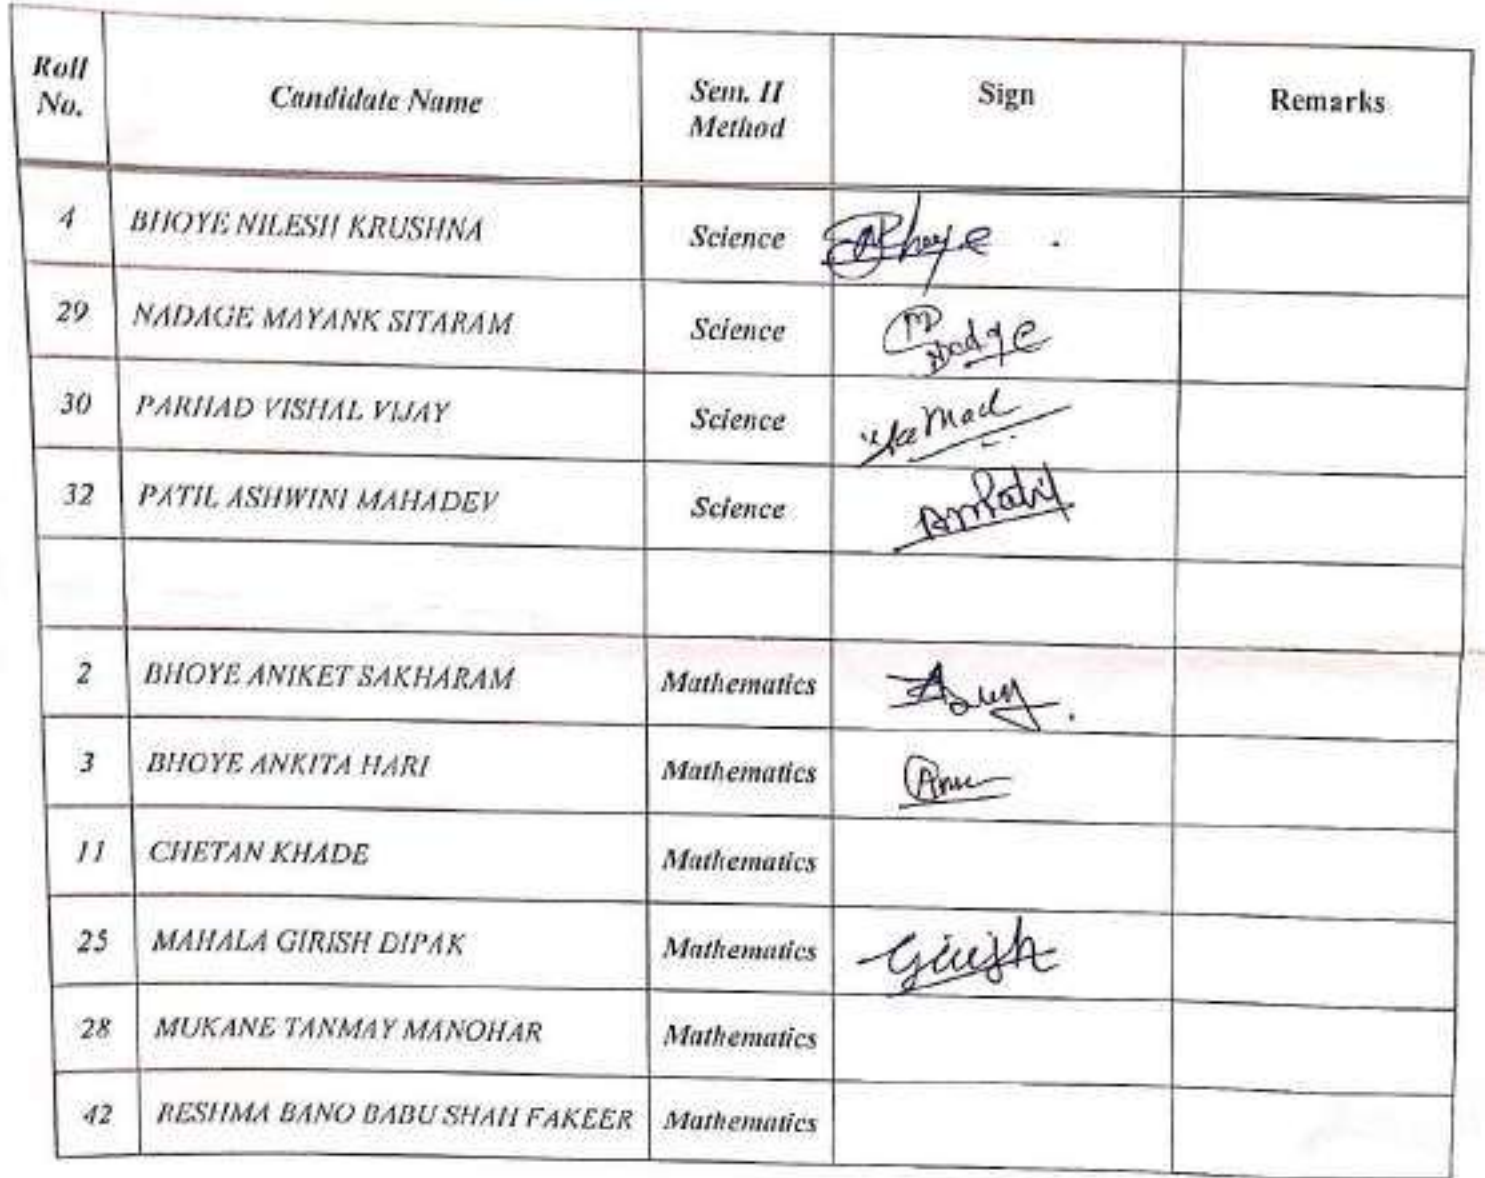 Roll No. Candidate Name Sem. II Method Sign Remarks
4 BHOYE NILESH KRUSHNA Science
29 NADAGE MAYANK SITARAM Science
30 PARHAD VISHAL VIJAY Science
32 PATIL ASHWINI MAHADEV Science AMPatil
2 BHOYE ANIKET SAKHARAM Mathematics
3 BHOYE ANKITA HARI Mathematics
11 CHETAN KHADE Mathematics
25 MAHALA GIRISH DIPAK Mathematics Girish
28 MUKANE TANMAY MANOHAR Mathematics
42 RESHMA BANO BABU SHAH FAKEER Mathematics